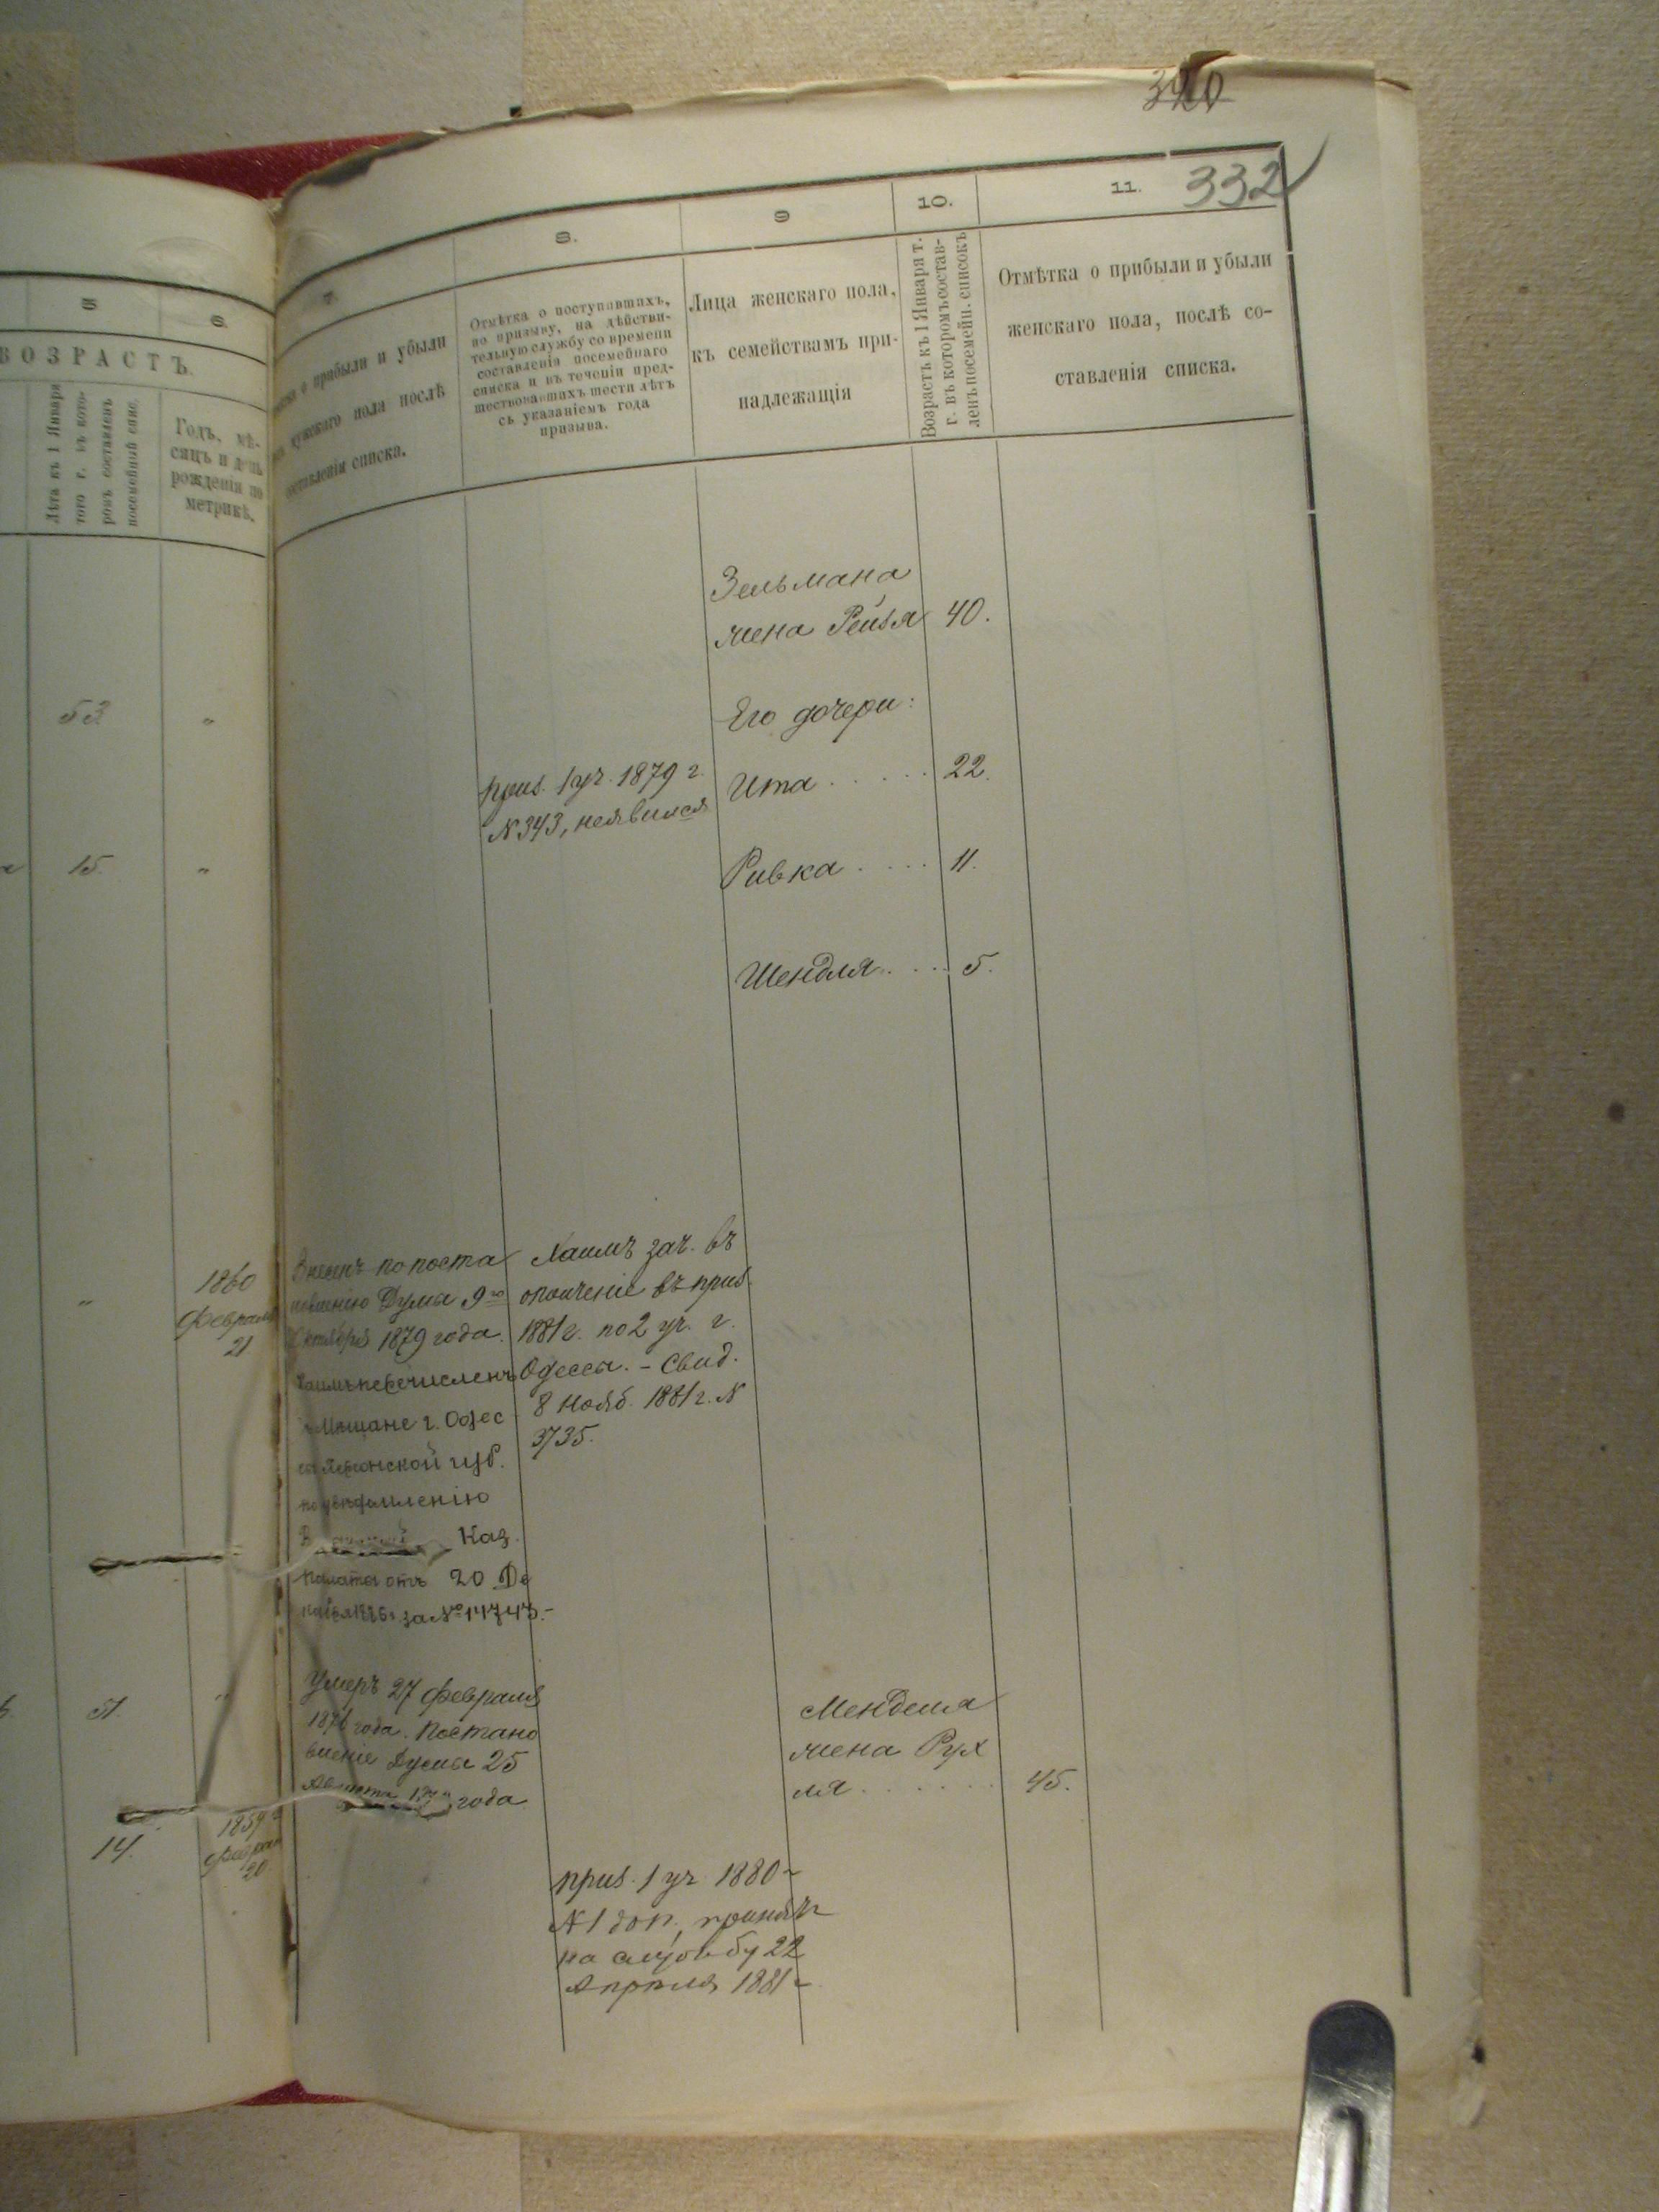 332
5
6.
7.
8.
9
10.
11.
ВОЗРАСТЪ.
Лѣта къ 1 Января
того г. въ кото-
ромъ составленъ
посемейный спис.
Годъ, мѣ-
сяцъ и день
рожденія по
метрикѣ.
о прибыли и убыли
мужскаго пола послѣ
составленія списка.
Отмѣтка о поступившихъ,
по призыву, на дѣйстви-
тельную службу со времени
составленія посемейнаго
списка и въ теченіи пред-
шествовавшихъ шести лѣтъ
съ указаніемъ года
призыва.
Лица женскаго пола,
къ семействамъ при-
надлежащія
Возрастъ къ 1 Января т.
г. въ которомъ состав-
ленъ посемейн. списокъ
Отмѣтка о прибыли и убыли
женскаго пола, послѣ со-
ставленія списка.
Зельмана
жена Рейзя 40.
53. "
Его дочери:
приз. 1 уч. 1879 г.
N 343, неявился
Ита 22.
15. "
Ривка 11.
Шендля 5.
" 1860
Февраля
21
Внесенъ по поста
новленію Думы 9го
Октября 1879 года.
Хаимъ перечисленъ
Мещане г. Одес
губ.
по увѣдомленію
Каз.
Палаты отъ 20 Де
за № 14743.-
Хаимъ зач. въ
ополченіе въ приз.
1881 г. по 2 уч. г.
Одессы. - Свид.
8 Нояб. 1881 г. N
3735.
51. "
Умеръ 27 Февраля
года. Постано
вленіе Думы 25
Августа года
Менделя
жена Рух
ля 45.
14. 1859
Феврал
20
приз. 1 уч. 1880 г
N 1 доп., принятъ
на службу 22
Апрѣля 1881 г.